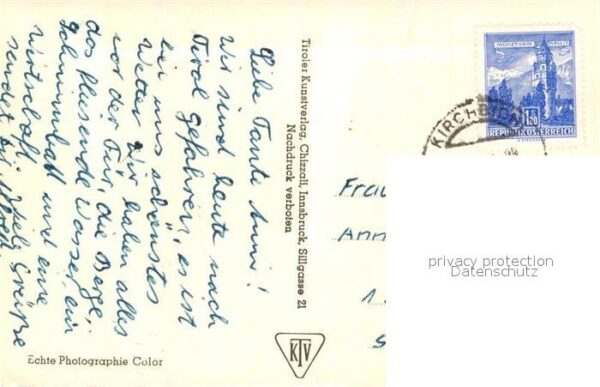 Liebe Tante Anni!
Wir sind heute nach
Tirol gefahren, es ist
hier uns schönstes
Wetter. Wir haben alles
vor der Tür, die Berge,
das fliesende Wasser, ein
Schwimmbad und eine
Wirtschaft. Viele Grüße
sendet dir
Echte Photographie Color
Tiroler Kunstverlag, Chizzali, Innsbruck, Sillgasse 21
Nachdruck verboten
KTV
MÜNZTURM HALL I.T.
1.50
REPUBLIK ÖSTERREICH
KIRCHBICHL
Frau
Ann
1.
privacy protection
Datenschutz